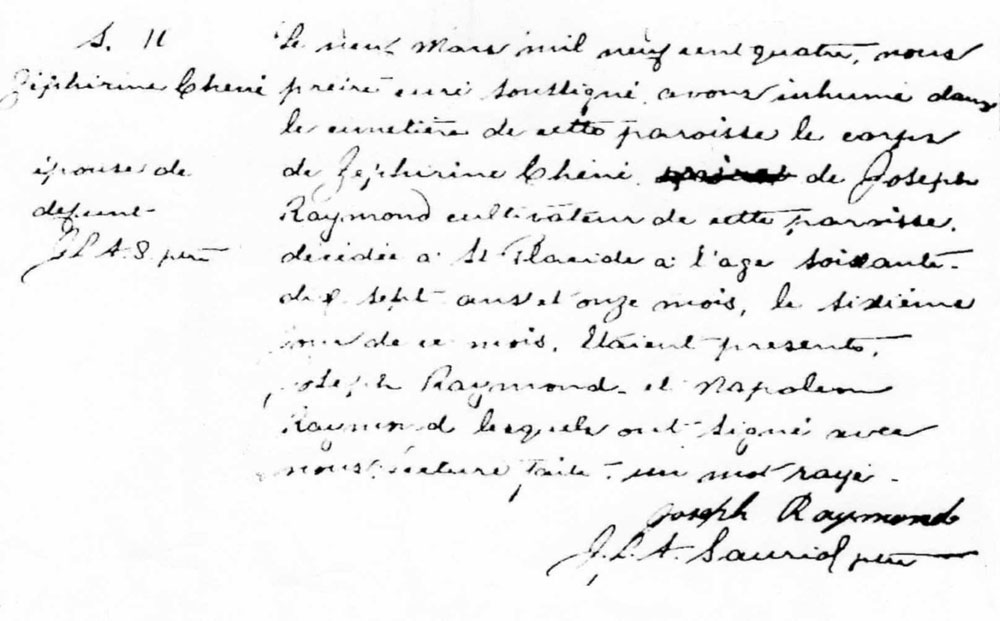 S. 11
Zéphirine Chéné
épouse de
defunt
J. L. A. S. ptre
Le neuf Mars mil neuf cent quatre, nous
prêtre curé soussigné avons inhumé dans
le cimetière de cette paroisse le corps
de Zéphirine Chéné de Joseph
Raymond cultivateur de cette paroisse.
décédée à St Placide à l'age soixante-
dix sept ans et onze mois, le sixième
jour de ce mois. Etaient presents,
Joseph Raymond et Napoleon
Raymond lesquels ont signé avec
nous. lecture faite. un mot rayé.
Joseph Raymond
J. L. A. Sauriol ptre